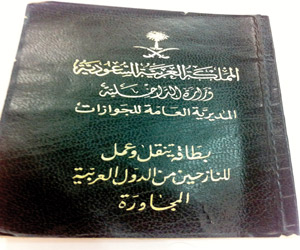 المملكة العربية السعودية
وزارة الداخلية
المديرية العامة للجوازات
بطاقة تنقل وعمل
للنازحين من الدول العربية
المجاورة